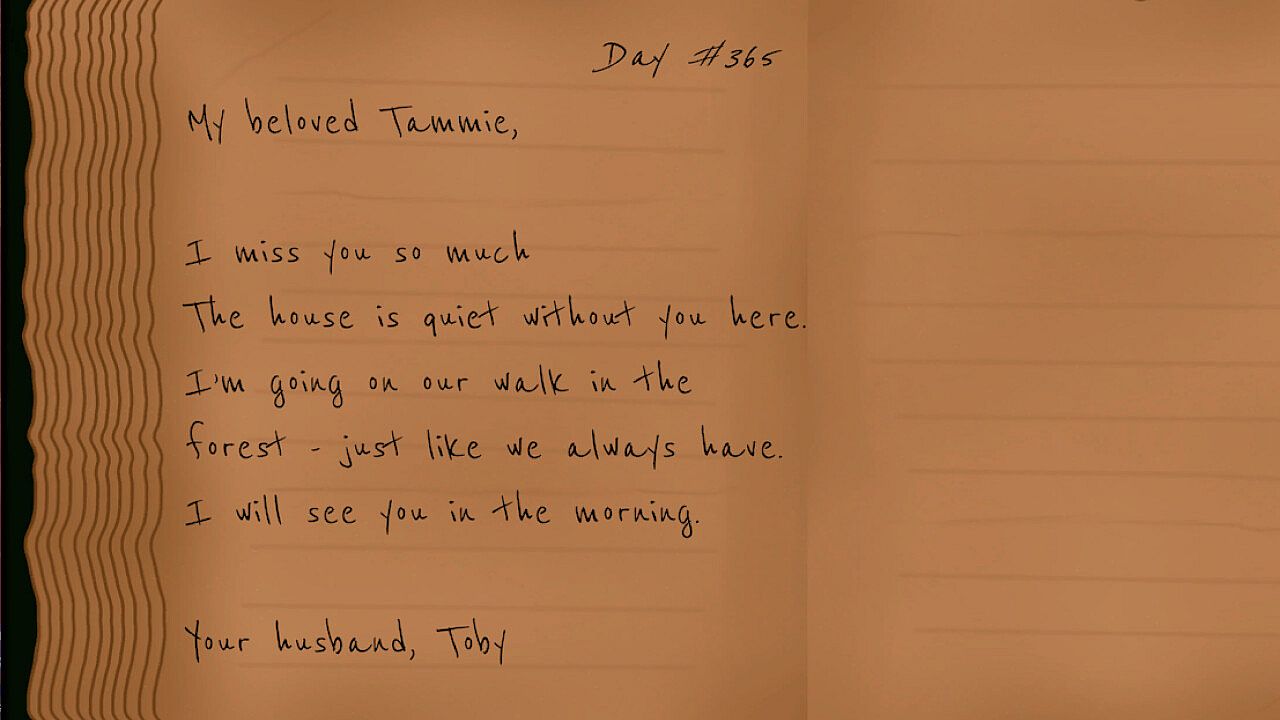 Day #365
My beloved Tammie,
I miss you so much
The house is quiet without you here.
I'm going on our walk in the
forest - just like we always have.
I will see you in the morning.
Your husband, Toby